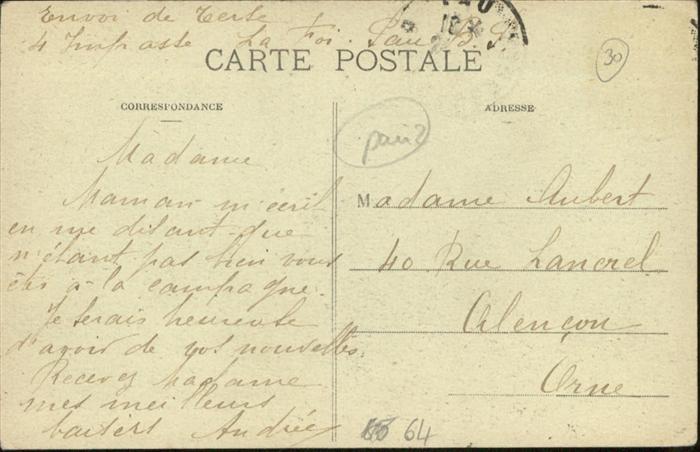 Envoi de Terse
4 Impasse La Foi. Pau B. P.
CARTE POSTALE
30
CORRESPONDANCE
ADRESSE
Madame
Maman m'écrit
en me disant que
n'étant pas bien vous
êtes à la campagne.
Je serais heureuse
d'avoir de vos nouvelles.
Recevez Madame
mes meilleurs
baisers Andrée
Madame Aubert
40 Rue Lancrel
Alençon
Orne
64